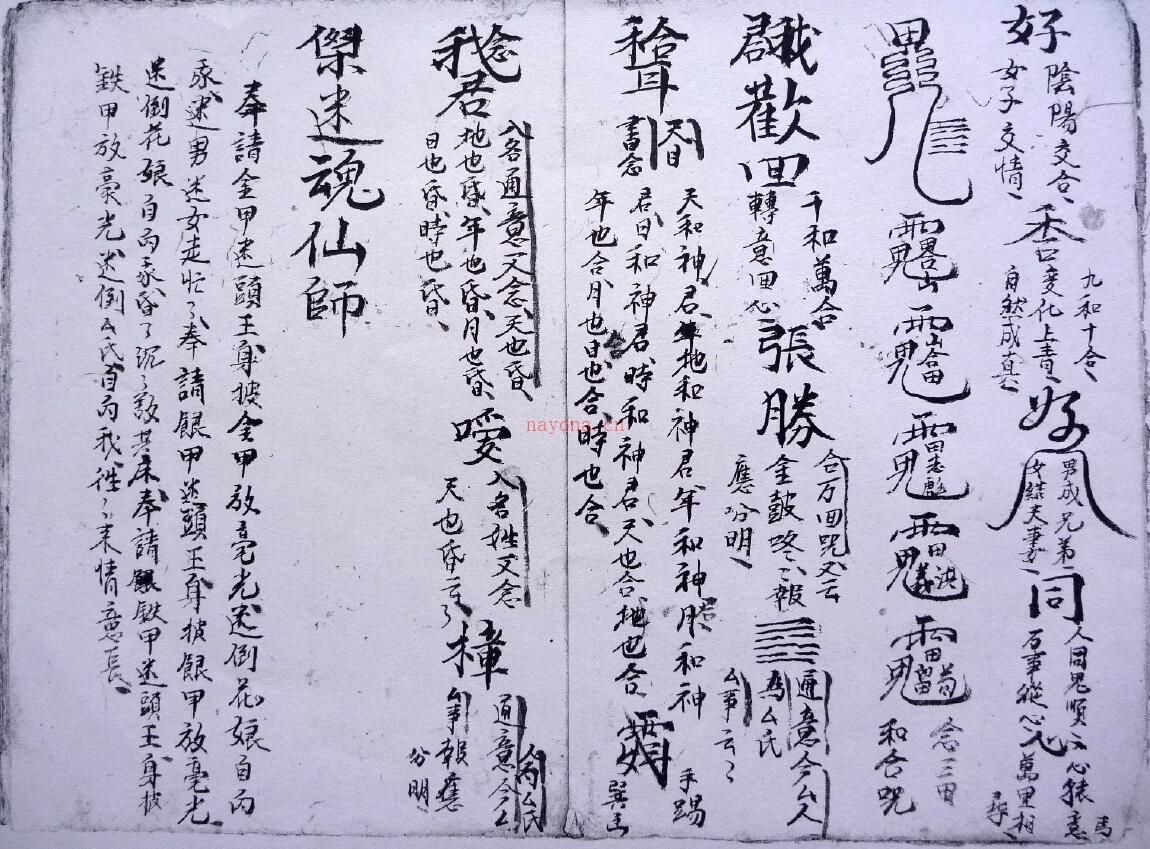 好
陰陽交合
女子交情
九和十合
變化上青
自然成真
好
男成兄弟
女結夫妻
同
人同鬼順
心猿意馬
百事從心
萬里相尋
念三田
和合咒
歡回
千和萬合
轉意回心
張勝
合万回咒又云
金鼓咚々報
應分明
通意今厶人
為厶氏
厶事云々
書念
天和神君地和神君年和神月和神
君日和神君時和神君天也合地也合
年也合月也日也合時也合
手踢
我君
入名通意又念天也昏
地也昏年也昏月也昏
日也昏時也昏
噯
入名姓又念
天也昏云々
通意今厶人為厶氏
厶事報應
分明
桀迷魂仙師
奉請金甲迷頭王身披金甲放毫光迷倒花娘自而
永迷男迷女走忙々奉請銀甲迷頭王身披銀甲放毫光
迷倒花娘自而永昏々沉々奉請鉄甲迷頭王身披
鉄甲放豪光迷倒厶氏自而我往々来情意長